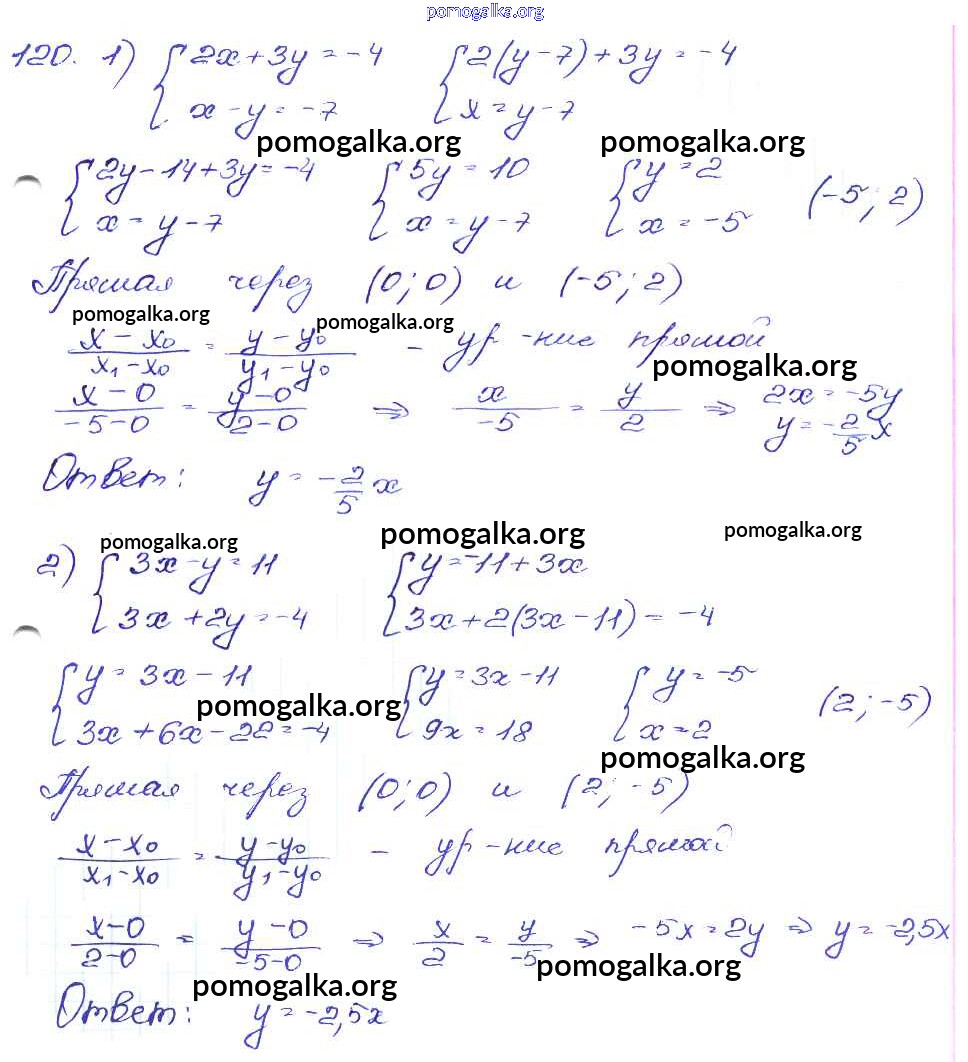 pomogalka.org
120. 1) { 2x + 3y = -4 { 2(y - 7) + 3y = -4
x - y = -7 x = y - 7
pomogalka.org pomogalka.org
{ 2y - 14 + 3y = -4 { 5y = 10 { y = 2 (-5; 2)
x = y - 7 x = y - 7 x = -5
Прямая через (0; 0) и (-5; 2)
pomogalka.org pomogalka.org
(x - x₀)/(x₁ - x₀) = (y - y₀)/(y₁ - y₀) - ур-ние прямой
pomogalka.org
(x - 0)/(-5 - 0) = (y - 0)/(2 - 0) ⇒ x/-5 = y/2 ⇒ 2x = -5y
y = -2/5 x
Ответ: y = -2/5 x
pomogalka.org pomogalka.org pomogalka.org
2) { 3x - y = 11 { y = -11 + 3x
3x + 2y = -4 3x + 2(3x - 11) = -4
{ y = 3x - 11 { y = 3x - 11 { y = -5 (2; -5)
pomogalka.org
3x + 6x - 22 = -4 9x = 18 x = 2
pomogalka.org
Прямая через (0; 0) и (2; -5)
(x - x₀)/(x₁ - x₀) = (y - y₀)/(y₁ - y₀) - ур-ние прямой
(x - 0)/(2 - 0) = (y - 0)/(-5 - 0) ⇒ x/2 = y/-5 ⇒ -5x = 2y ⇒ y = -2,5x
pomogalka.org pomogalka.org
Ответ: y = -2,5x
pomogalka.org